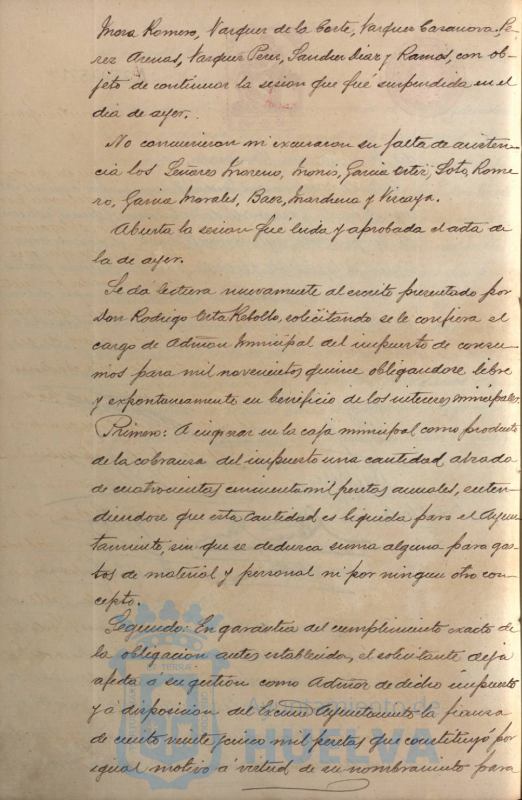 Mora Romero, Vazquez de la Corte, Vazquez Casanova, Pe-
rez Arenas, Vazquez Perez, Sanchez Diaz y Ramos, con ob-
jeto de continuar la sesion que fué suspendida en el
dia de ayer.
No concurrieron ni excusaron su falta de asisten-
cia los Señores Moreno, Monis, Garcia Ortiz, Soto, Rome-
ro, Garcia Morales, Baez, Mardena y Vizcaya.
Abierta la sesion fué leida y aprobada el acta de
la de ayer.
Se da lectura nuevamente al escrito presentado por
Don Rodrigo Orta Rebollo, solicitando se le confiera el
cargo de Admon Municipal del impuesto de consu-
mos para mil novecientos quince obligandose libre
y expontaneamente en beneficio de los intereses municipales.
Primero: A ingresar en la caja municipal como producto
de la cobranza del impuesto una cantidad alzada
de cuatrocientas cincuenta mil pesetas anuales, enten-
diendose que esta cantidad es liquida para el Ayun-
tamiento, sin que se deduzca suma alguna para gas-
tos de material y personal ni por ningun otro con-
cepto.
Segundo: En garantia del cumplimiento exacto de
la obligacion antes establecida, el solicitante deja
afecta a su gestion como Admor de dicho impuesto
y á disposicion del Excmo Ayuntamiento la fianza
de ciento veinte y cinco mil pesetas que constituyó por
igual motivo á virtud de su nombramiento para
Ayuntamiento de
HUELVA